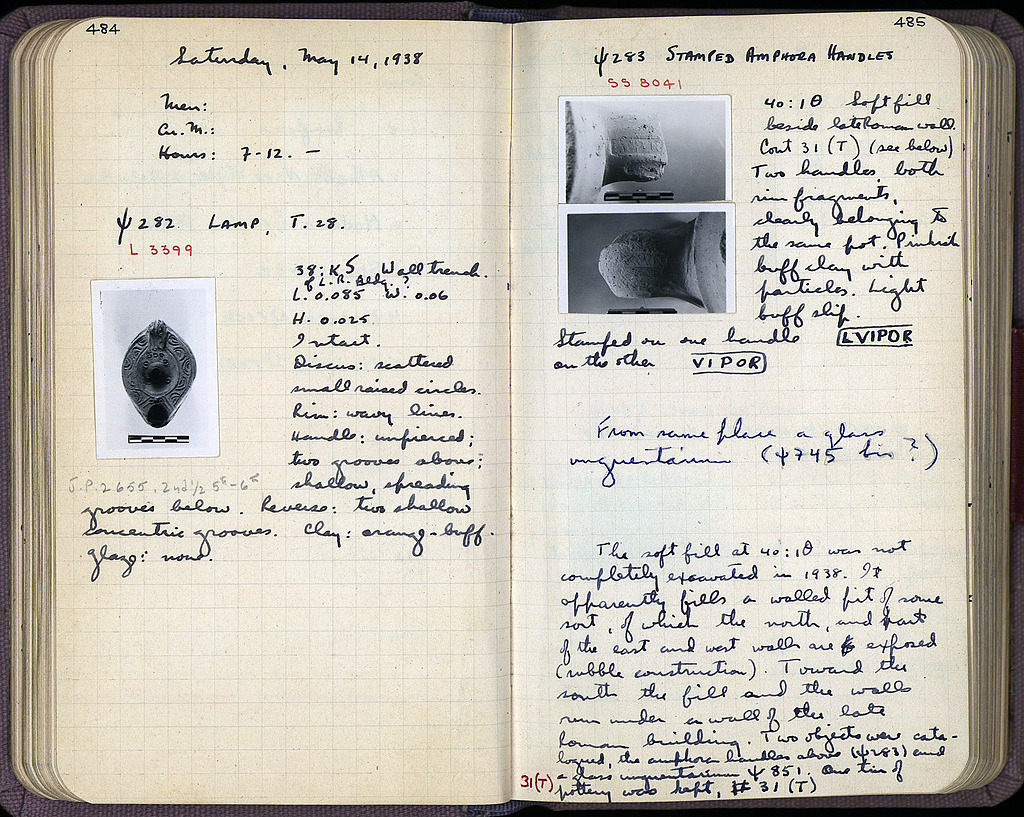 484
Saturday, May 14, 1938
Men:
Cu. M.:
Hours: 7-12. —
ψ 282 LAMP, T. 28.
L 3399
38:K5 Wall trench
of L.R. Bldg.?
L. 0.085 W. 0.06
H. 0.025.
Intact.
Discus: scattered
small raised circles.
Rim: wavy lines.
Handle: unpierced;
two grooves above;
J.P. 2655, 2nd 1/2 5th-6th
shallow, spreading
grooves below. Reverse: two shallow
concentric grooves. Clay: orange-buff.
Glaze: none.
485
ψ283 STAMPED AMPHORA HANDLES
SS 8041
40:1Θ Soft fill
beside late Roman wall.
Cont 31 (T) (see below)
Two handles, both
rim fragments,
clearly belonging to
the same pot. Pinkish
buff clay with
particles. Light
buff slip.
Stamped on one handle LVIPOR
on the other VIPOR
From same place a glass
unguentarium (ψ745 bis?)
The soft fill at 40:1Θ was not
completely excavated in 1938. It
apparently fills a walled pit of some
sort, of which the north, and part
of the east and west walls are exposed
(rubble construction). Toward the
south the fill and the walls
run under a wall of the late
Roman building. Two objects were cata-
logued, the amphora handles above (ψ283) and
a glass unguentarium ψ 851. One tin of
31(T) pottery was kept, # 31 (T)